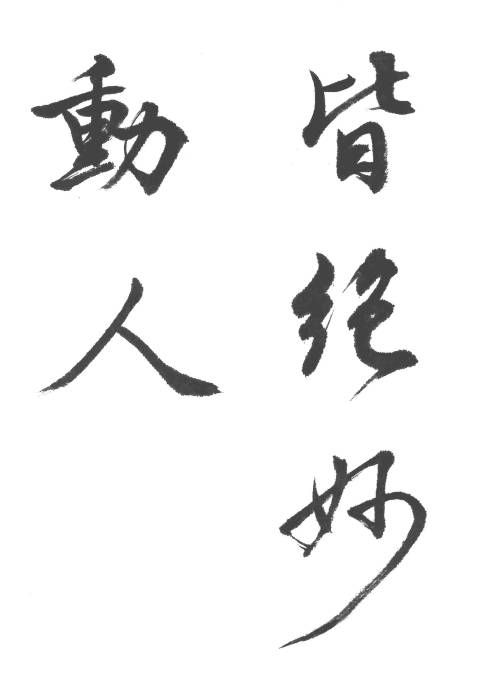 皆絶妙
動人